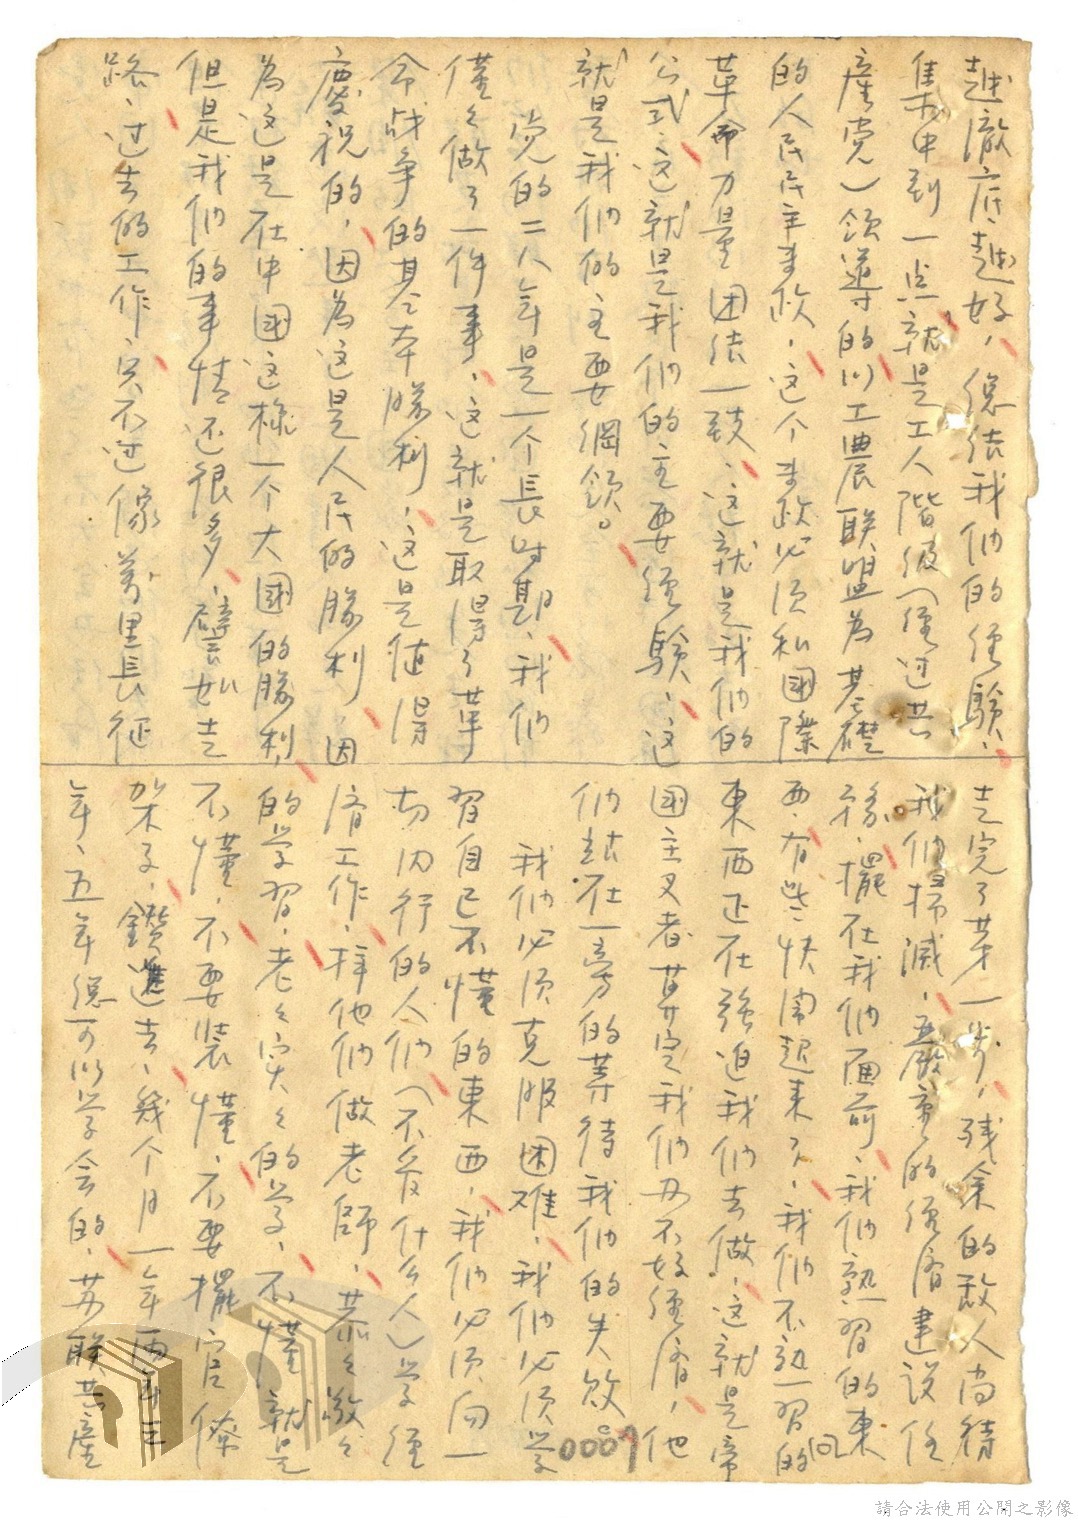 越澈底越好，總結我們的經驗、
集中到一点就是工人階級（經过共
產党）領導的以工農联盟為基礎
的人民民主專政，这个專政必須和國際
革命力量团结一致、这就是我們的
公式、这就是我們的主要經驗、这
就是我們的主要綱領。
党的二八年是一个長时期、我们
僅々做了一件事、这就是取得了革
命战争的基本勝利，这是值得
慶祝的，因為这是人民的勝利，因
為这是在中國这樣一个大國的勝利
但是我们的事情还很多、譬如走
路、过去的工作只不过像萬里長征
走完了第一步，残余的敌人尚待
我們掃滅、嚴重的經濟建設任
務，擺在我们面前、我们熟習的東
西，有些快閒起来了、我们不熟習的
東西正在強迫我们去做，这就是
困难，帝
国主义者算定我们办不好經濟，他
们站在一旁的等待我们的失敗
我们必須克服困难，我们必須学
習自己不懂的東西，我们必須向一
切内行的人们（不管什么人）学經
濟工作，拜他们做老師，恭々敬々
的学習，老々实々的学、不懂就是
不懂，不要裝懂，不要擺官僚
架子，鑽進去，幾个月一年两年三
年、五年總可以学会的，苏联共產
0007
請合法使用公開之影像